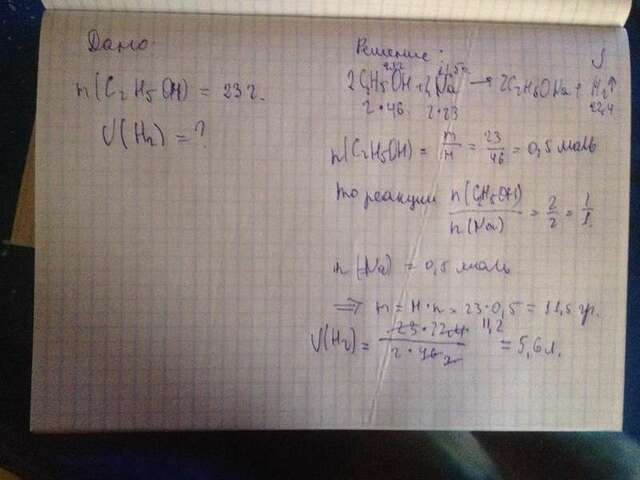 Дано:
n(C₂H₅OH) = 23 г.
V(H₂) = ?
Решение:
2C₂H₅OH + 2Na → 2C₂H₅ONa + H₂↑
2·46 2·23 22,4
n(C₂H₅OH) = m/M = 23/46 = 0,5 моль
по реакции n(C₂H₅OH)/n(Na) = 2/2 = 1/1
n(Na) = 0,5 моль
⇒ m = M·n = 23·0,5 = 11,5 гр.
V(H₂) = 23·22,4/2·46 = 5,6 л.